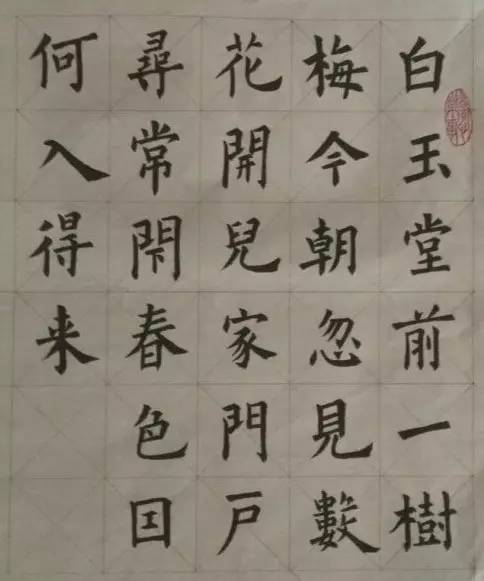 白玉堂前一樹
梅今朝忽見數
花開兒家門戸
尋常閇春色囙
何入得来